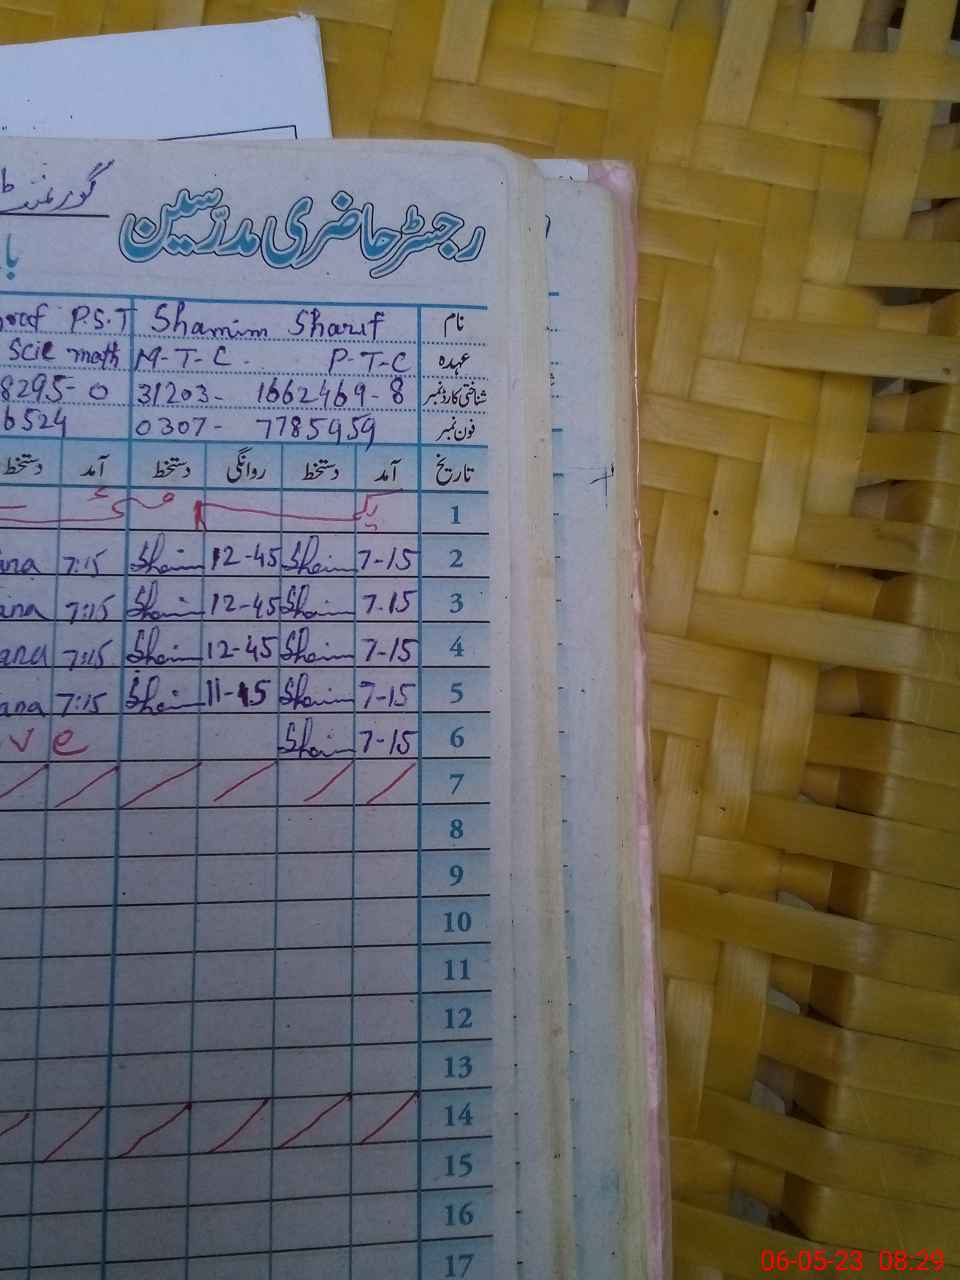 گورنمنٹ
رجسٹر حاضری مدرسین
نام Shamim Sharif P.S.T
عہدہ M-T-C P-T-C Scie math
شناختی کارڈ نمبر 31203- 1662469-8 8295-0
فون نمبر 0307- 7785959 6524
تاریخ آمد دستخط روانگی دستخط آمد دستخط
1 یکم مئی
2 7-15 Sham 12-45 Sham 7:15
3 7-15 Sham 12-45 Sham 7:15
4 7-15 Sham 12-45 Sham 7:15
5 7-15 Sham 11-45 Sham 7:15
6 7-15 Sham ve
7
8
9
10
11
12
13
14
15
16
17
06-05-23 08:29